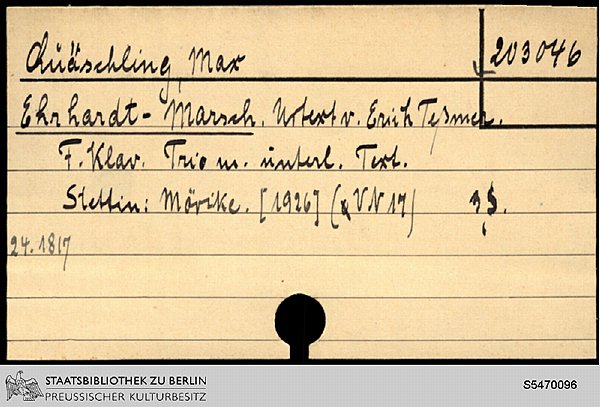 Quäschling, Max
203046
Ehrhardt-Marsch. Urtext v. Erich Teßmer.
F. Klav. Trio m. unterl. Text.
Stettin: Mörike. [1926] (VN 17) 3 S.
24.1817
STAATSBIBLIOTHEK ZU BERLIN
PREUSSISCHER KULTURBESITZ
S5470096